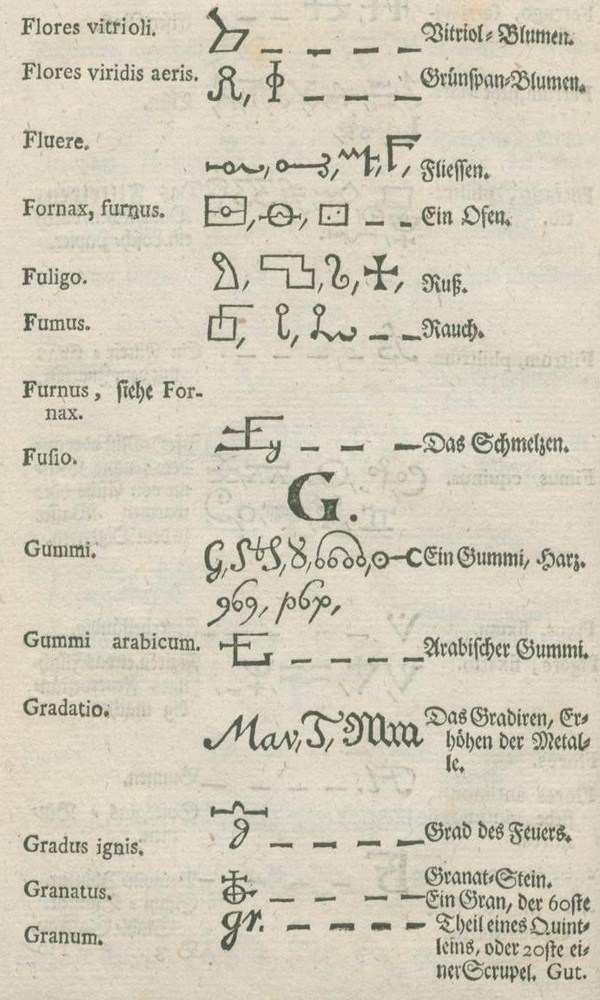 Flores vitrioli. — — — — Vitriol⸗Blumen.
Flores viridis aeris. — — — Grünspan⸗Blumen.
Fluere. Fliessen.
Fornax, furnus. — — Ein Ofen.
Fuligo. Ruß.
Fumus. — — Rauch.
Furnus, siehe For-
nax.
Fusio. — — — Das Schmelzen.
G.
Gummi. Ein Gummi, Harz.
969, pbp,
Gummi arabicum. — — — — Arabischer Gummi.
Gradatio. Mav, T, Das Gradiren, Er⸗
höhen der Metal⸗
le.
Gradus ignis. — — — — Grad des Feuers.
Granatus. — — — — Granat⸗Stein.
Granum. gr. — — — — Ein Gran, der 60ste
Theil eines Quint⸗
leins, oder 20ste ei⸗
ner Scrupel. Gut.